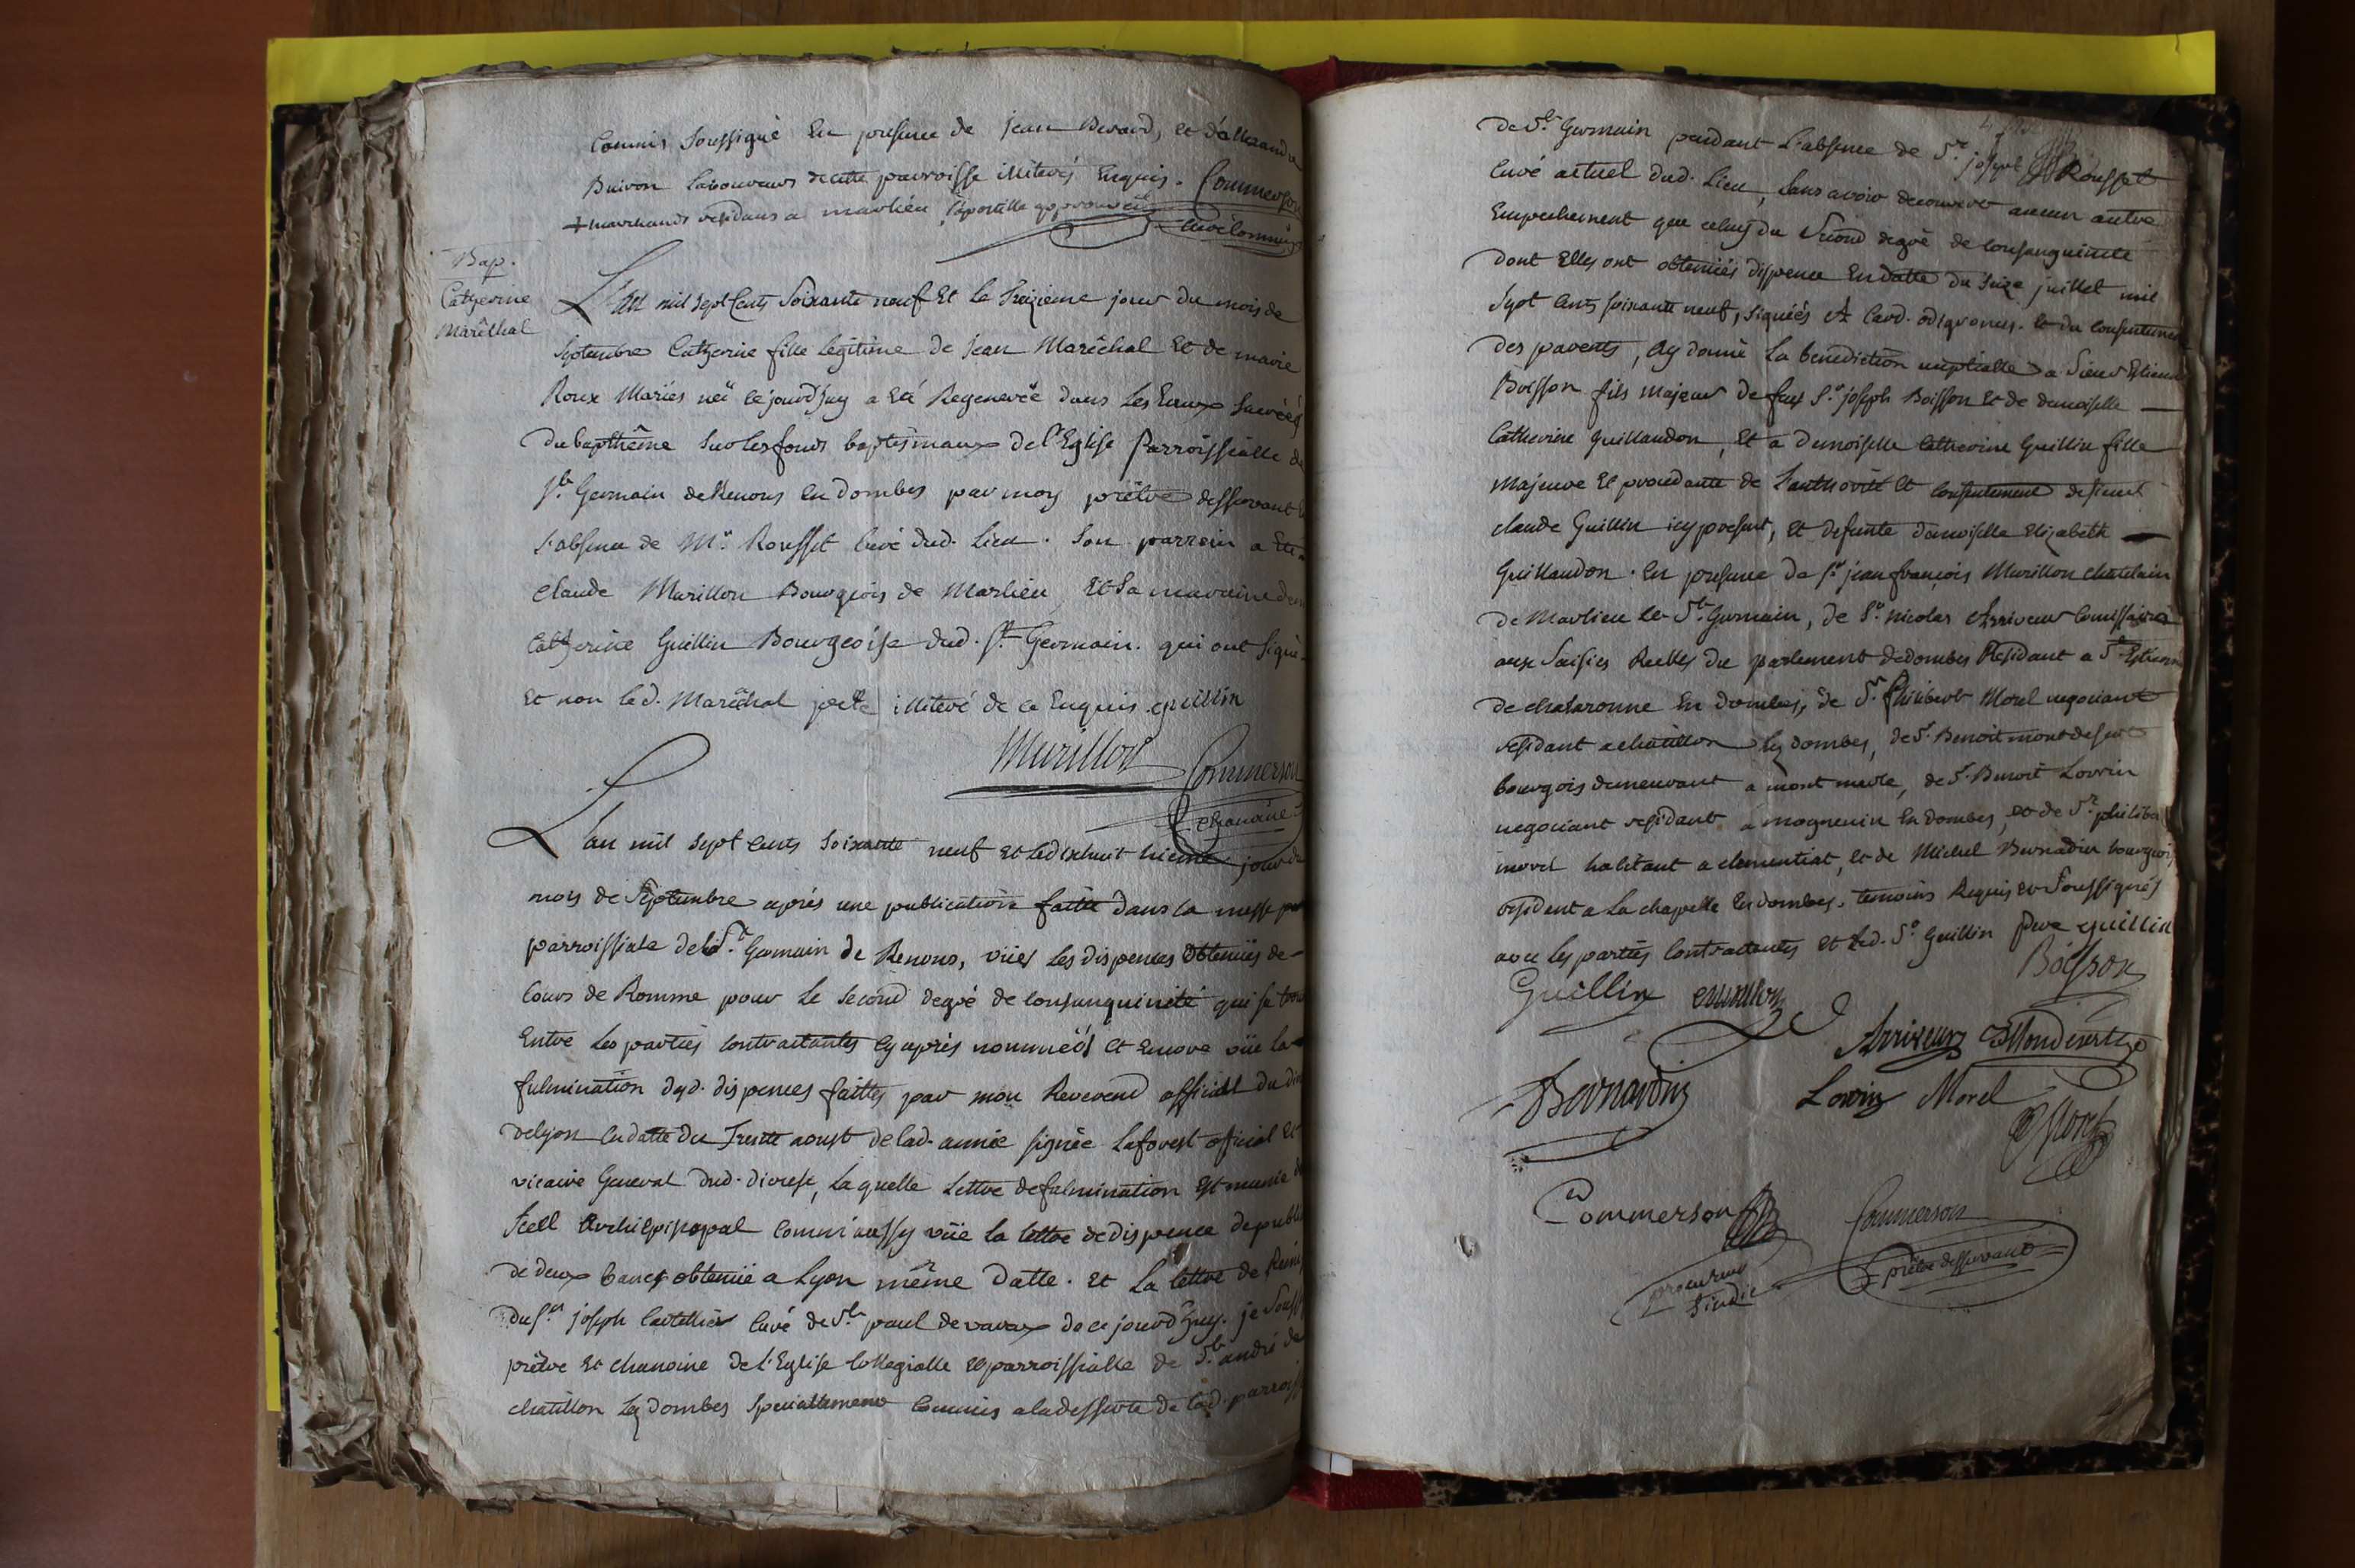 Commis soussigné En presence de jean Berard, et d'allexandre
Buiron Laboureurs de cette parroisse illiterés Enquis. Commerson
+ marchands residans a marlieu, l'apostille approuvée curé commis
Bap.
Catherine
Maréchal
L'an mil sept Cents Soixante neuf Et le treizieme jour du mois de
septembre Catherine fille legitime de jean Maréchal Et de marie
Roux Mariés née cejourd'huy a été Regenerée dans les Eaux Sacrées
du bapthême sur les fonds baptismaux de l'Eglise Parroissialle de
St. Germain de Renons en dombes par moy prêtre desservant
l'absence de Mr. Rousset Curé dud. Lieu. Son parrein a Eté
claude Murillon Bourgeois de Marlieu, Et Sa marraine
Catherine Guillin Bourgeoise dud. St. Germain. qui ont signé
Et non led. Maréchal pere illiteré de ce Enquis. guillin
Murillon Commerson
chanoine
L'an mil sept cents soixante neuf et le dixhuit jour du
mois de Septembre aprés une publication faitte dans la messe
parroissiale de St. Germain de Renons, vües les dispenses obtenuës de
Cour de Romme pour le second degré de consanguinité qui se
Entre les parties contractantes cy aprés nommeés et encore vüe la
fulmination desd. dispences faittes par mon Reverend official du
de lyon en datte du Trente aoust de lad. année signée Laforest official et
vicaire General dud. diocese, Laquelle Lettre de fulmination Est munie
Scell Archiepiscopal comm'aussy vüe la lettre de dispence de
de deux bancs obtenüe a Lyon même datte. Et La lettre de
du Sr. joseph curé de St. paul de varax de ce jourd'huy. je
prêtre Et chanoine de l'Eglise Collegialle et parroissialle de St. andré de
chatillon les dombes specialement Commis a la desserte de lad.
de St. Germain pendant L'absence de Sr. joseph Rousset
Curé actuel dud. Lieu, sans avoir decouvert aucun autre
Empechement que celuy du second degré de consanguinité
dont Elles ont obtenües dispence En datte du seize juillet mil
sept cents soixante neuf, signées Card. et du consentement
des parents, ay donné La benediction nuptialle a sieur Estienne
Boisson fils majeur de feu Sr. joseph Boisson et de demoiselle
Catherine Guillaudon, Et a demoiselle Catherine Guillin fille
majeure et procedante de l'authorité et consentement de sieur
claude Guillin icy present, et defunte damoiselle Elizabeth
Guillaudon. En presence de Sr. jean françois Murillon chatelain
de Marlieu et St. Germain, de Sr. nicolas Arriveur Commissaire
aux saisies Reelles du parlement de dombes Residant a St. Estienne
de chalaronne En dombes, de Sr. philibert Morel negociant
residant a chatillon les dombes, de Sr. Benoit mondesert
bourgois demeurant a mont merle, de Sr. Benoit Lorrin
negociant residant a mognenein en dombes, et de Sr. philibert
morel habitant a clementiat, et de Michel Bernardin bourgois
resident a La chapelle En dombes. temoins Requis et soussignés
avec les parties contractantes et led. Sr. Guillin pere guillin
Guillin Boisson
Arriveur BMondesert
Bernardin Lorrin Morel
P Morel
Commerson Commerson
procureur prêtre desservant
sindic